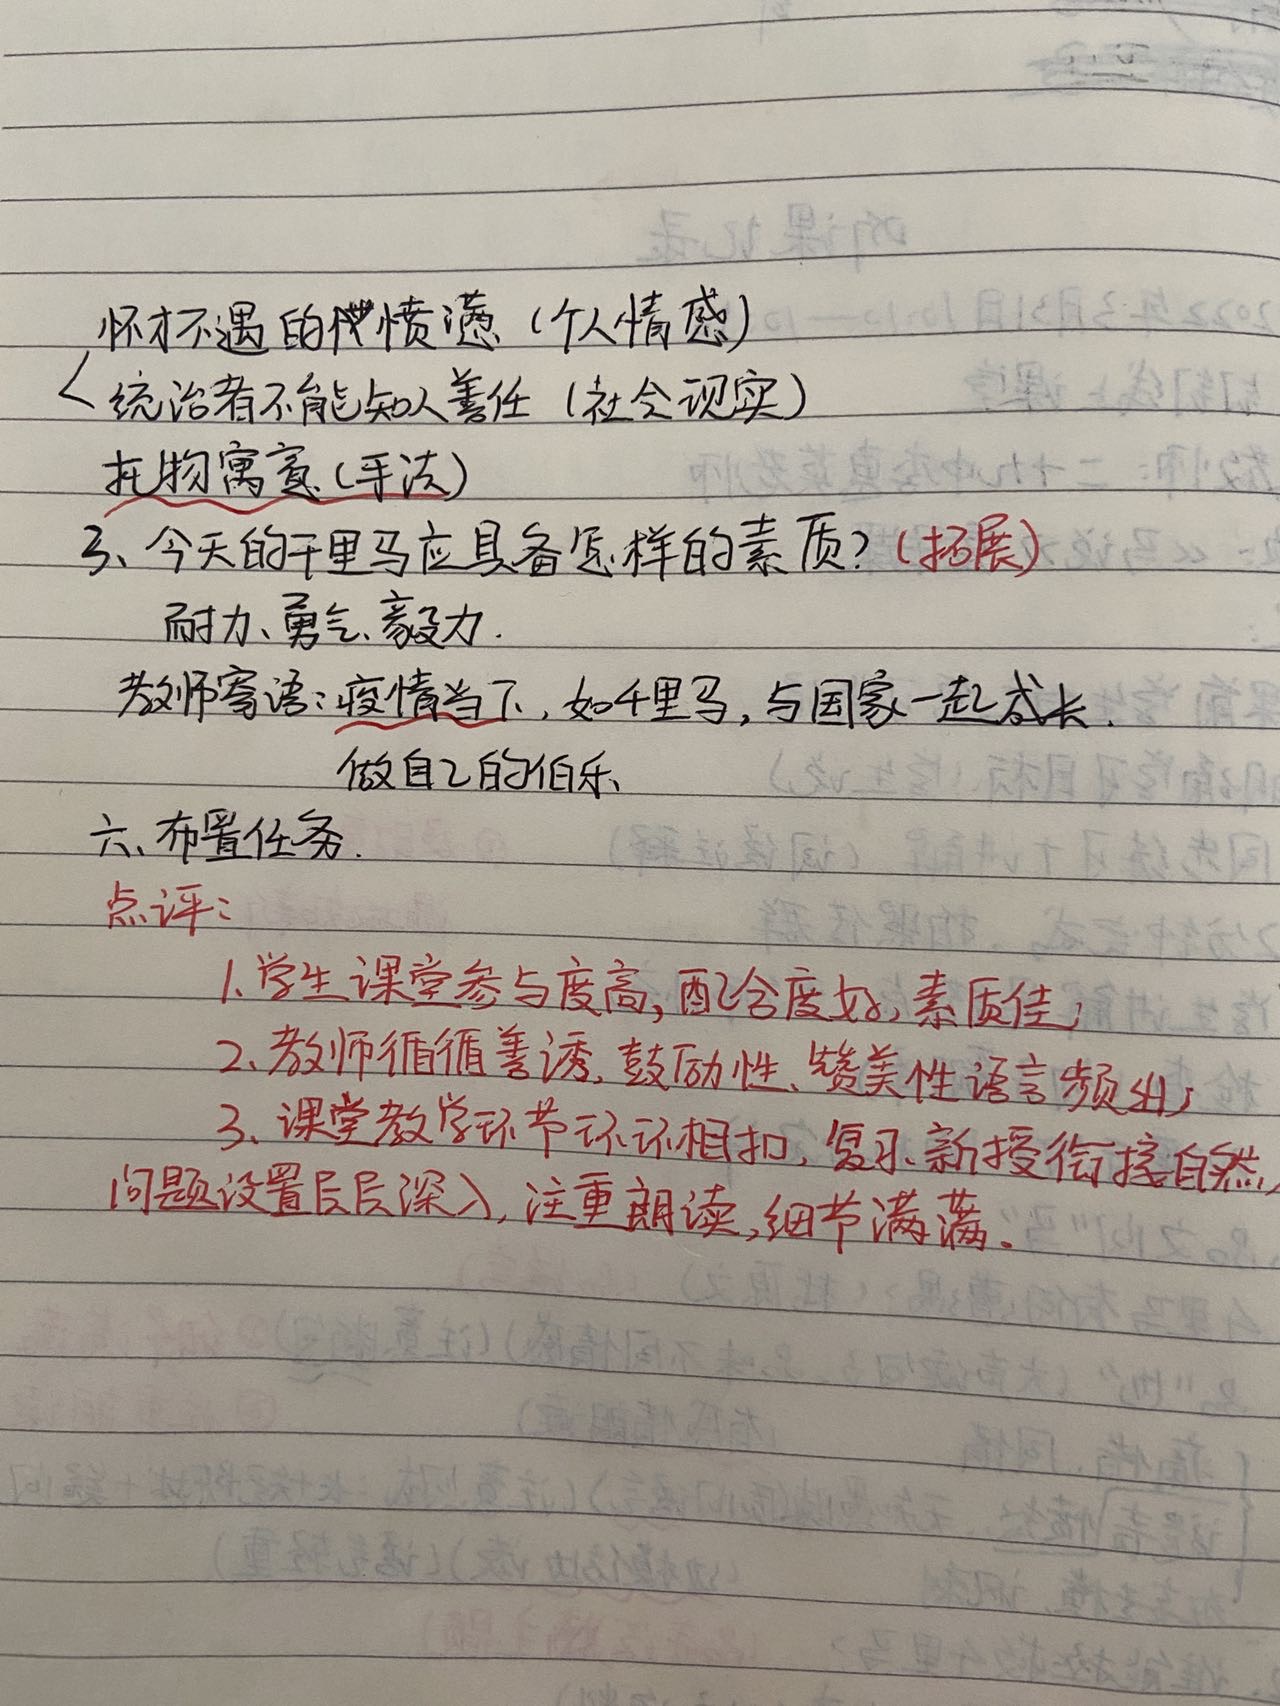 怀才不遇的愤懑（个人情感）
统治者不能知人善任（社会现实）
托物寓意（手法）
3、今天的千里马应具备怎样的素质？（拓展）
耐力、勇气、毅力.
教师寄语：疫情当下，如千里马，与国家一起成长.
做自己的伯乐、
六、布置任务.
点评：
1、学生课堂参与度高，配合度好，素质佳；
2、教师循循善诱，鼓励性、赞美性语言频出；
3、课堂教学环节环环相扣，复习、新授衔接自然，
问题设置层层深入，注重朗读，细节满满.